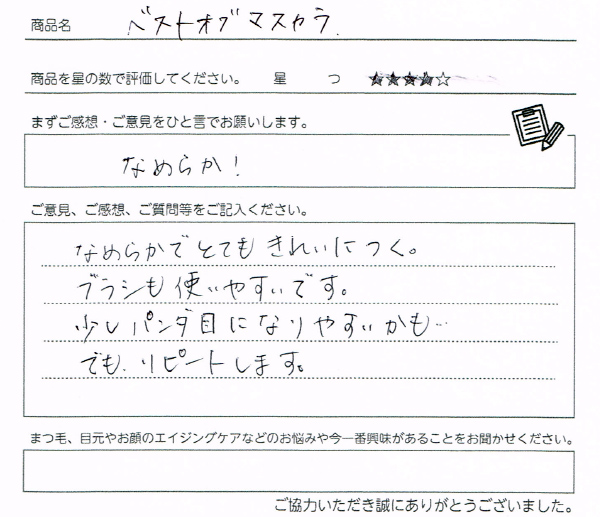 商品名 ベストオブマスカラ.
商品を星の数で評価してください。 星 つ ★★★★☆
まずご感想・ご意見をひと言でお願いします。
なめらか!
ご意見、ご感想、ご質問等をご記入ください。
なめらかでとてもきれいにつく。
ブラシも使いやすいです。
少しパンダ目になりやすいかも…
でも、リピートします。
まつ毛、目元やお顔のエイジングケアなどのお悩みや今一番興味があることをお聞かせください。
ご協力いただき誠にありがとうございました。